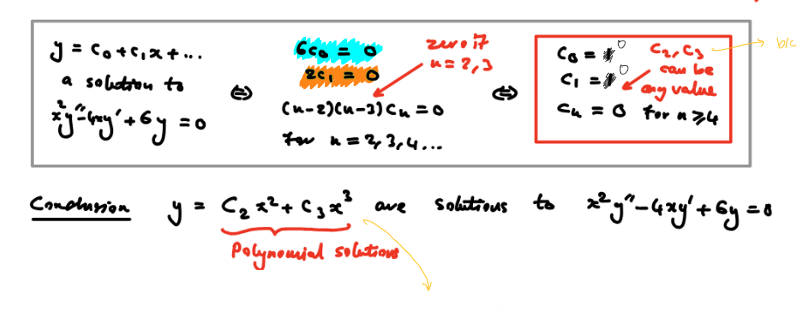 y = c₀+c₁x+...
a solution to
x²y''-4xy'+6y = 0
⇔
6c₀ = 0
2c₁ = 0
(n-2)(n-3)Cₙ = 0
for n = 2,3,4...
zero if
n = 2,3
⇔
C₀ = 0
C₁ = 0
Cₙ = 0 for n ≥ 4
C₂, C₃
can be
any value
b/c
Conclusion y = C₂x² + C₃x³ are solutions to x²y''-4xy'+6y=0
Polynomial solutions